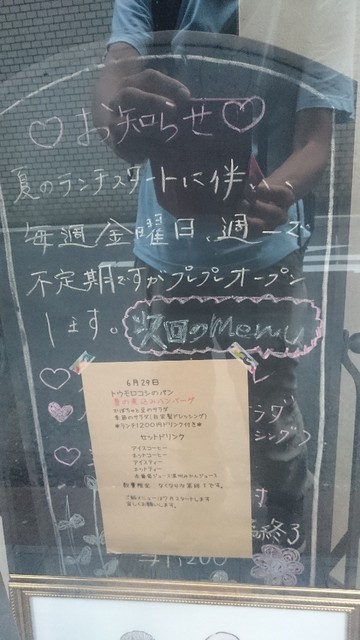 お知らせ
夏のランチスタートに伴い、
毎週金曜日、週一で
不定期ですがプレプレオープン
します。次回のMenu
6月29日
トウモロコシのパン
夏の煮込みハンバーグ
かぼちゃと豆のサラダ
季節のサラダ(自家製ドレッシング)
*ランチ1200円ドリンク付き*
セットドリンク
アイスコーヒー
ホットコーヒー
アイスティー
ホットティー
数量限定 なくなり次第終了です。
宜しくお願いします。
ラダ
シング
終了
1200